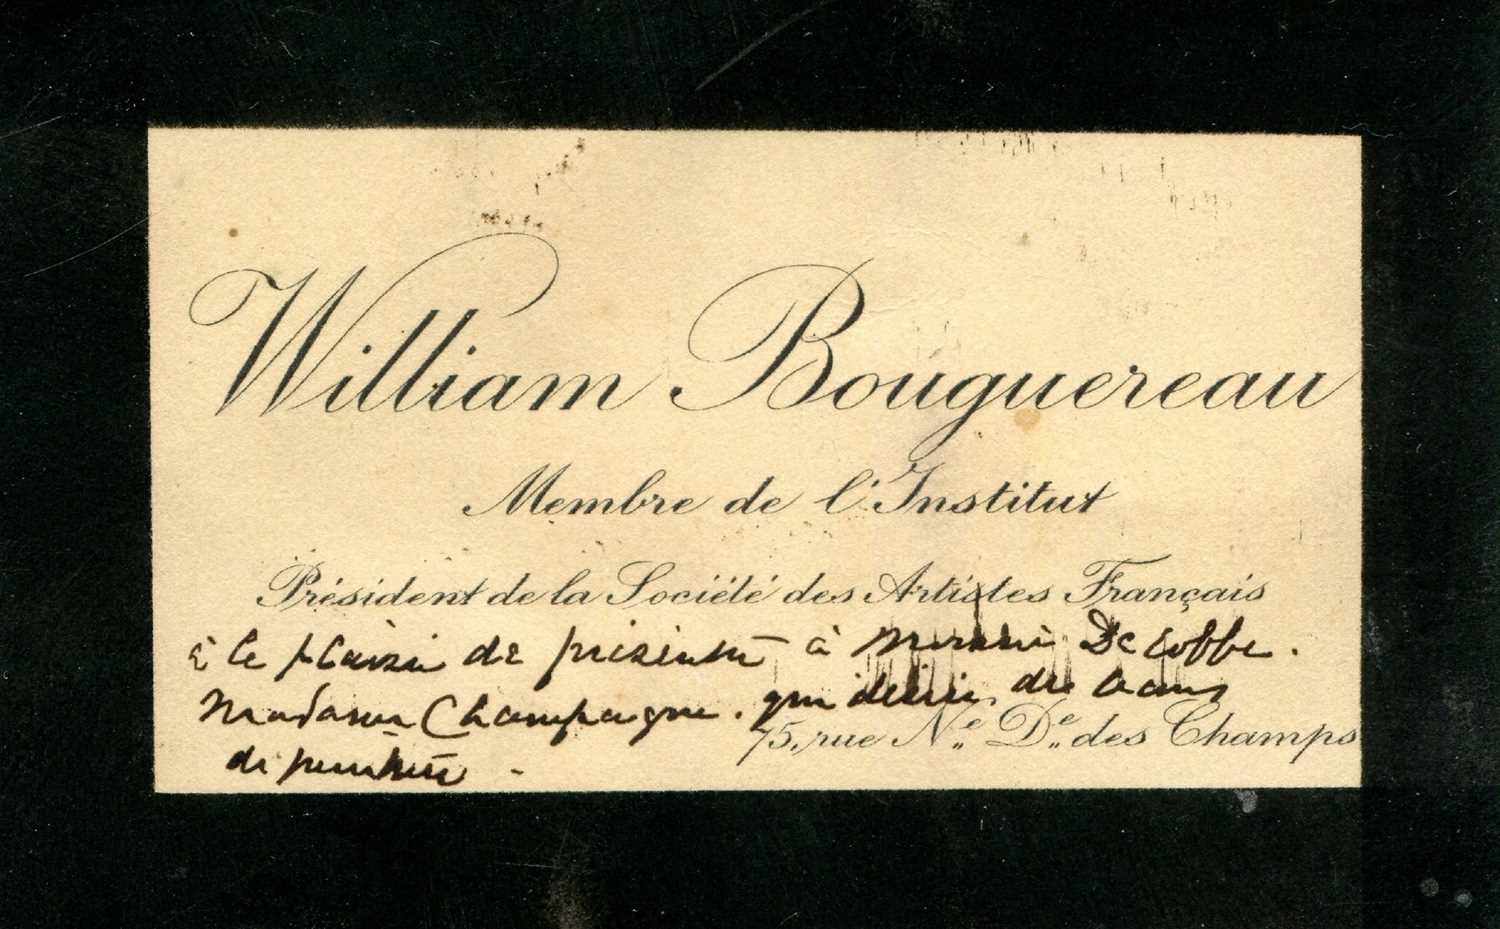 William Bouguereau
Membre de l'Institut
Président de la Société des Artistes Français
à le plaisir de présenter à De Cobbe.
Madame Champagne. qui désire des
75, rue Ne.. De.. des Champs
de peinture